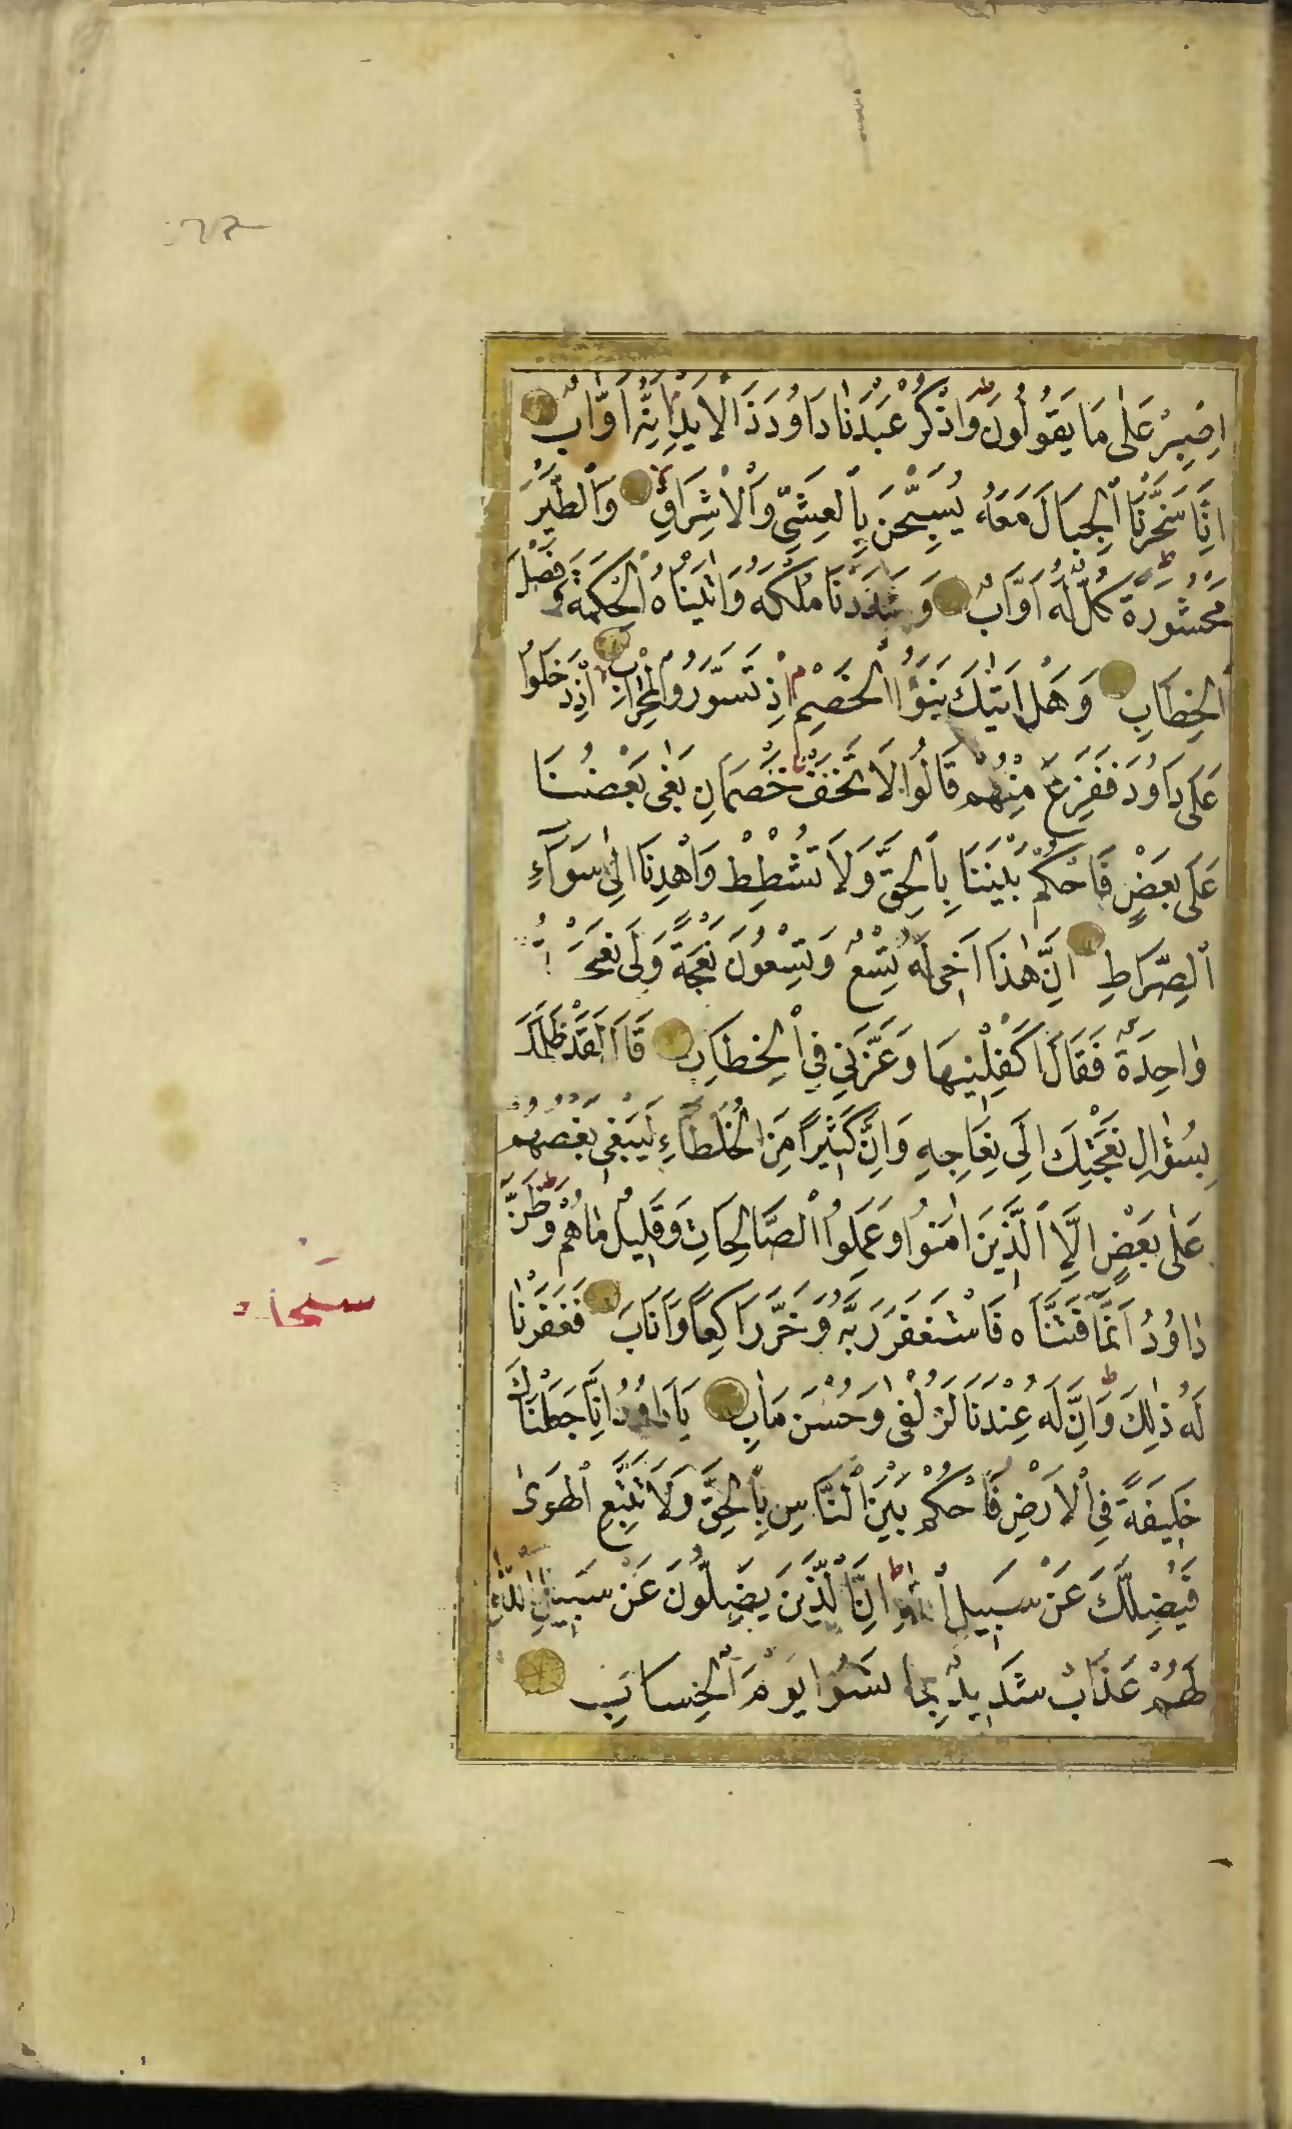 اِصْبِرْ عَلٰى مَا يَقُولُونَ وَاذْكُرْ عَبْدَنَا دَاوُدَ ذَا الْاَيْدِ اِنَّهُ اَوَّابٌ
اِنَّا سَخَّرْنَا الْجِبَالَ مَعَهُ يُسَبِّحْنَ بِالْعَشِىِّ وَالْاِشْرَاقِ وَالطَّيْرَ
مَحْشُورَةً كُلٌّ لَهُ اَوَّابٌ وَشَدَدْنَا مُلْكَهُ وَاٰتَيْنَاهُ الْحِكْمَةَ وَفَصْلَ
الْخِطَابِ وَهَلْ اَتٰيكَ نَبَؤُا الْخَصْمِ اِذْ تَسَوَّرُوا الْمِحْرَابَ اِذْ دَخَلُوا
عَلٰى دَاوُدَ فَفَزِعَ مِنْهُمْ قَالُوا لَا تَخَفْ خَصْمَانِ بَغٰى بَعْضُنَا
عَلٰى بَعْضٍ فَاحْكُمْ بَيْنَنَا بِالْحَقِّ وَلَا تُشْطِطْ وَاهْدِنَا اِلٰى سَوَآءِ
الصِّرَاطِ اِنَّ هٰذَا اَخِى لَهُ تِسْعٌ وَتِسْعُونَ نَعْجَةً وَلِىَ نَعْجَةٌ
وَاحِدَةٌ فَقَالَ اَكْفِلْنِيهَا وَعَزَّنِى فِى الْخِطَابِ قَالَ لَقَدْ ظَلَمَكَ
بِسُؤَالِ نَعْجَتِكَ اِلٰى نِعَاجِهِ وَاِنَّ كَثِيرًا مِنَ الْخُلَطَآءِ لَيَبْغِى بَعْضُهُمْ
عَلٰى بَعْضٍ اِلَّا الَّذِينَ اٰمَنُوا وَعَمِلُوا الصَّالِحَاتِ وَقَلِيلٌ مَا هُمْ وَظَنَّ
دَاوُدُ اَنَّمَا فَتَنَّاهُ فَاسْتَغْفَرَ رَبَّهُ وَخَرَّ رَاكِعًا وَاَنَابَ فَغَفَرْنَا
لَهُ ذٰلِكَ وَاِنَّ لَهُ عِنْدَنَا لَزُلْفٰى وَحُسْنَ مَاٰبٍ يَا دَاوُدُ اِنَّا جَعَلْنَاكَ
خَلِيفَةً فِى الْاَرْضِ فَاحْكُمْ بَيْنَ النَّاسِ بِالْحَقِّ وَلَا تَتَّبِعِ الْهَوٰى
فَيُضِلَّكَ عَنْ سَبِيلِ اللّٰهِ اِنَّ الَّذِينَ يَضِلُّونَ عَنْ سَبِيلِ اللّٰهِ
لَهُمْ عَذَابٌ شَدِيدٌ بِمَا نَسُوا يَوْمَ الْحِسَابِ